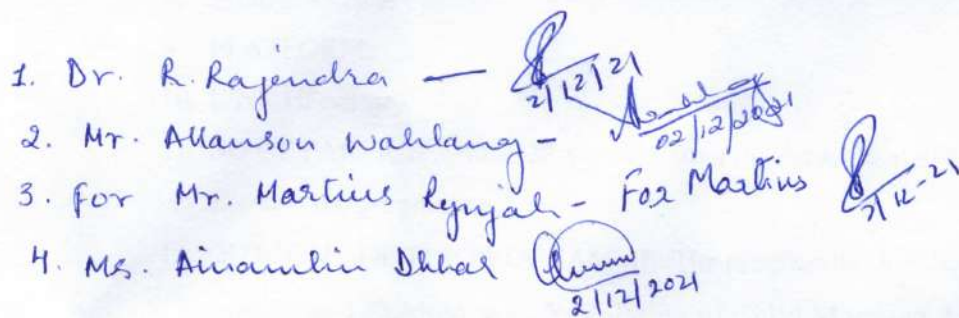 1. Dr. R. Rajendra — 2/12/21
2. Mr. Allanson Wahlang - 02/12/2021
3. For Mr. Martius Rynjah - For Martius 2/12-21
4. Ms. Ainamlin Dkhar 2/12/2021